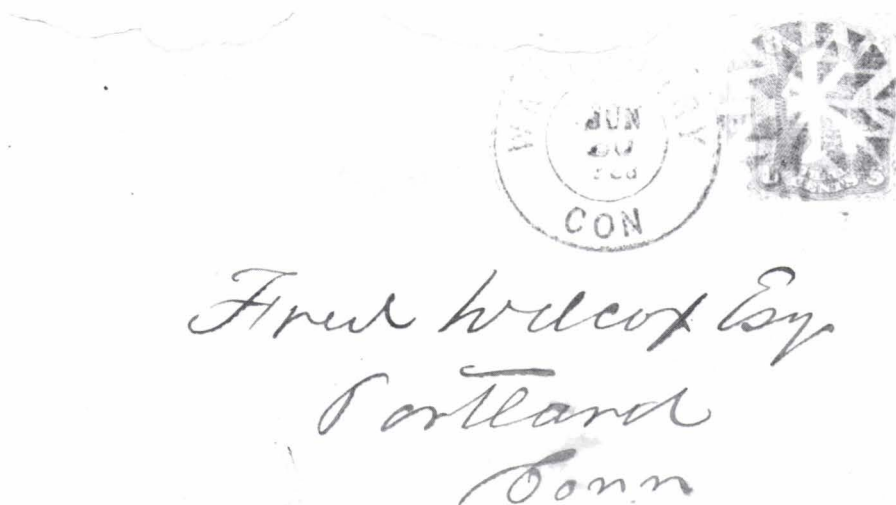 JUN
CON
Fred Wilcox Esq.
Portland
Conn